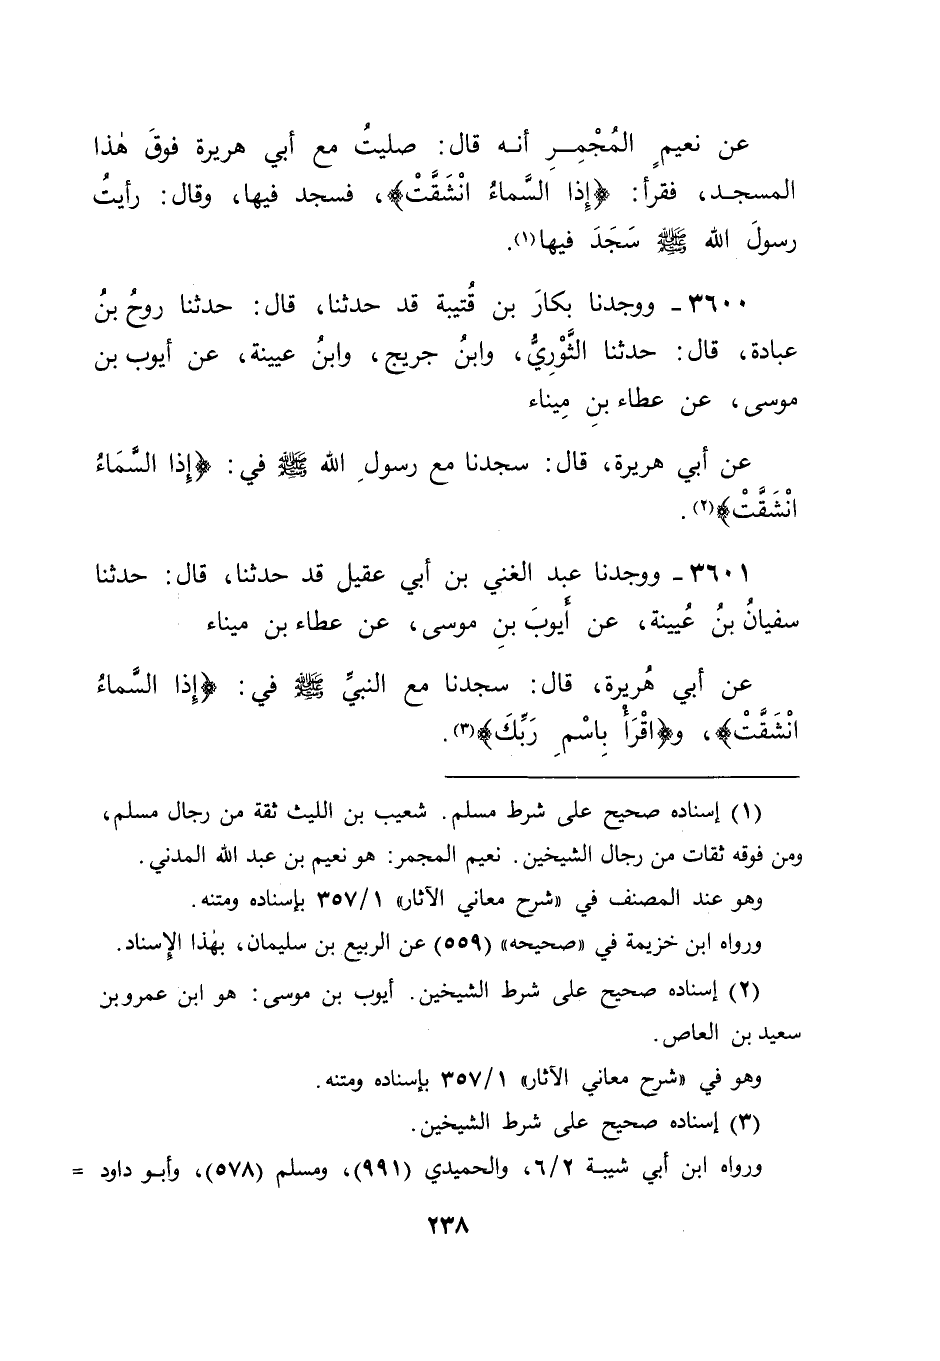 عن نعيمٍ المُجْمِـرِ أنـه قال: صليتُ مع أبي هريرة فوقَ هٰذا
المسجـد، فقرأ: ﴿إِذا السَّماءُ انْشَقَّتْ﴾، فسجد فيها، وقال: رأيتُ
رسولَ الله ﷺ سَجَدَ فيها(١).
٣٦٠٠ - ووجدنا بكارَ بن قُتيبة قد حدثنا، قال: حدثنا روحُ بنُ
عبادة، قال: حدثنا الثَّوْرِيُّ، وابنُ جريج، وابنُ عيينة، عن أيوب بن
موسى، عن عطاء بنِ مِيناء
عن أبي هريرة، قال: سجدنا مع رسولِ الله ﷺ في: ﴿إِذا السَّمَاءُ
انْشَقَّتْ﴾(٢).
٣٦٠١ - ووجدنا عبد الغني بن أبي عقيل قد حدثنا، قال: حدثنا
سفيانُ بنُ عُيينة، عن أَيوبَ بنِ موسى، عن عطاء بن ميناء
عن أبي هُريرة، قال: سجدنا مع النبيِّ ﷺ في: ﴿إِذا السَّماءُ
انْشَقَّتْ﴾، و﴿اقْرَأْ بِاسْمِ رَبِّكَ﴾(٣).
(١) إسناده صحيح على شرط مسلم. شعيب بن الليث ثقة من رجال مسلم،
ومن فوقه ثقات من رجال الشيخين. نعيم المجمر: هو نعيم بن عبد الله المدني.
وهو عند المصنف في «شرح معاني الآثار» ٣٥٧/١ بإسناده ومتنه.
ورواه ابن خزيمة في «صحيحه» (٥٥٩) عن الربيع بن سليمان، بهٰذا الإِسناد.
(٢) إسناده صحيح على شرط الشيخين. أيوب بن موسى: هو ابن عمرو بن
سعيد بن العاص.
وهو في «شرح معاني الآثار» ٣٥٧/١ بإسناده ومتنه.
(٣) إسناده صحيح على شرط الشيخين.
ورواه ابن أبي شيبـة ٦/٢، والحميدي (٩٩١)، ومسلم (٥٧٨)، وأبـو داود =
٢٣٨